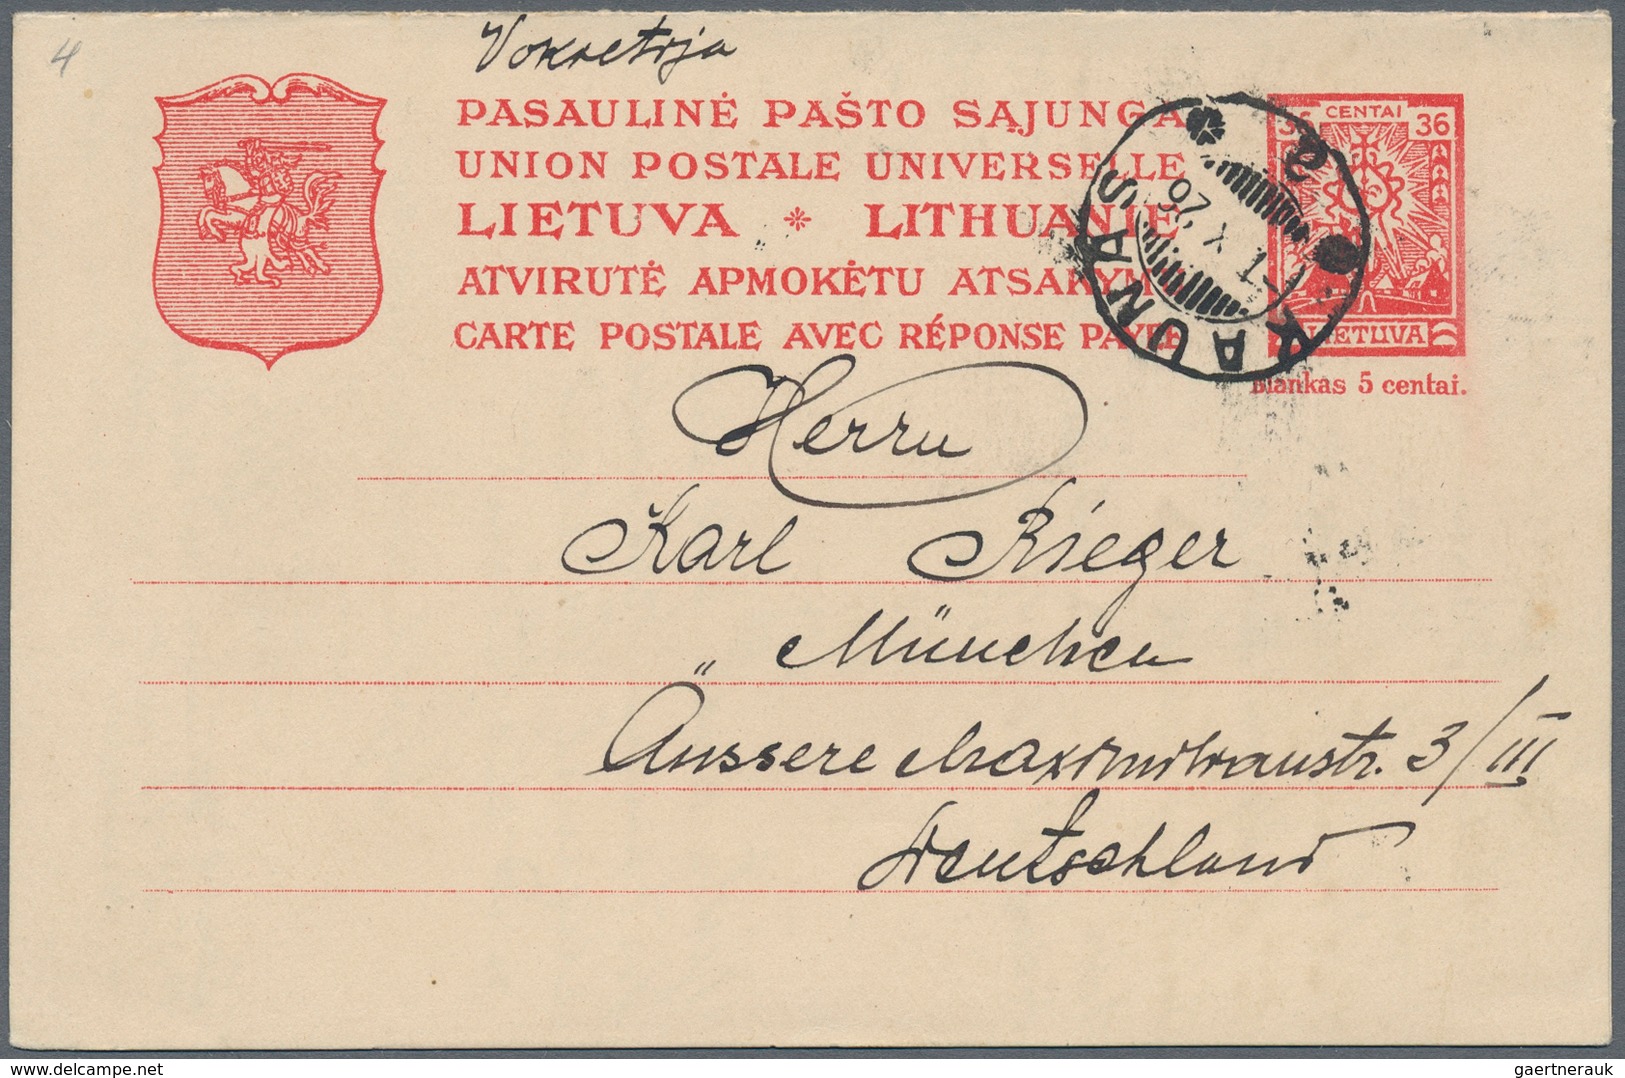 4
Vokietija
PASAULINĖ PAŠTO SĄJUNGA
UNION POSTALE UNIVERSELLE
LIETUVA * LITHUANIE
ATVIRUTĖ APMOKĖTU ATSAKYMU
CARTE POSTALE AVEC RÉPONSE PAYÉE
CENTAI
36 36
LIETUVA
Blankas 5 centai.
KAUNAS 2
-1 X 26
Herrn
Karl Rieger
" München
Äussere Maximilianstr. 3/III
Deutschland
delcampe.net
gaertnerauk